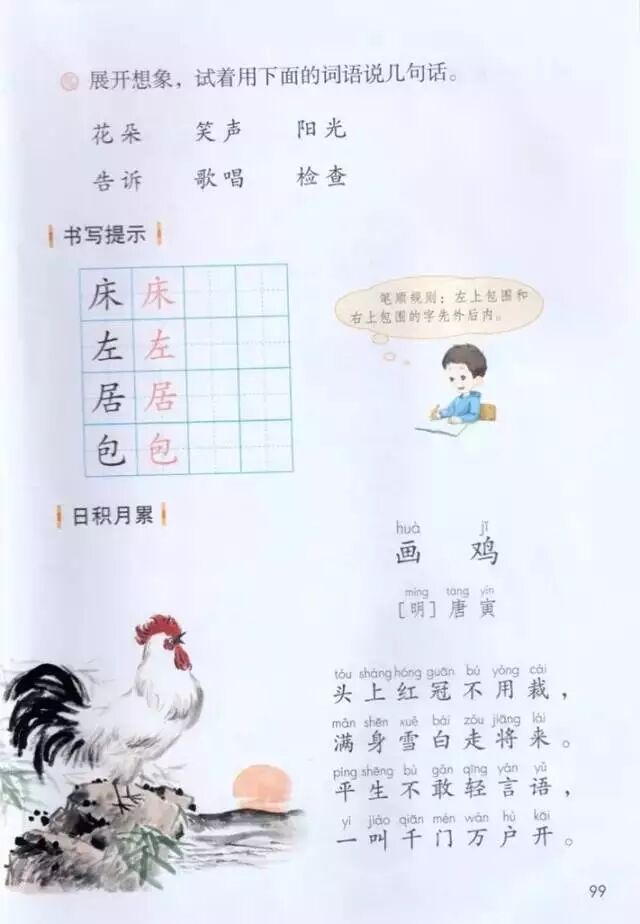 展开想象，试着用下面的词语说几句话。
花朵 笑声 阳光
告诉 歌唱 检查
书写提示
床 床
左 左
居 居
包 包
笔顺规则：左上包围和
右上包围的字先外后内。
日积月累
huà jī
画 鸡
míng táng yín
［明］唐 寅
tóu shàng hóng guān bú yòng cái
头上红冠不用裁，
mǎn shēn xuě bái zǒu jiāng lái
满身雪白走将来。
píng shēng bù gǎn qīng yán yǔ
平生不敢轻言语，
yí jiào qiān mén wàn hù kāi
一叫千门万户开。
99